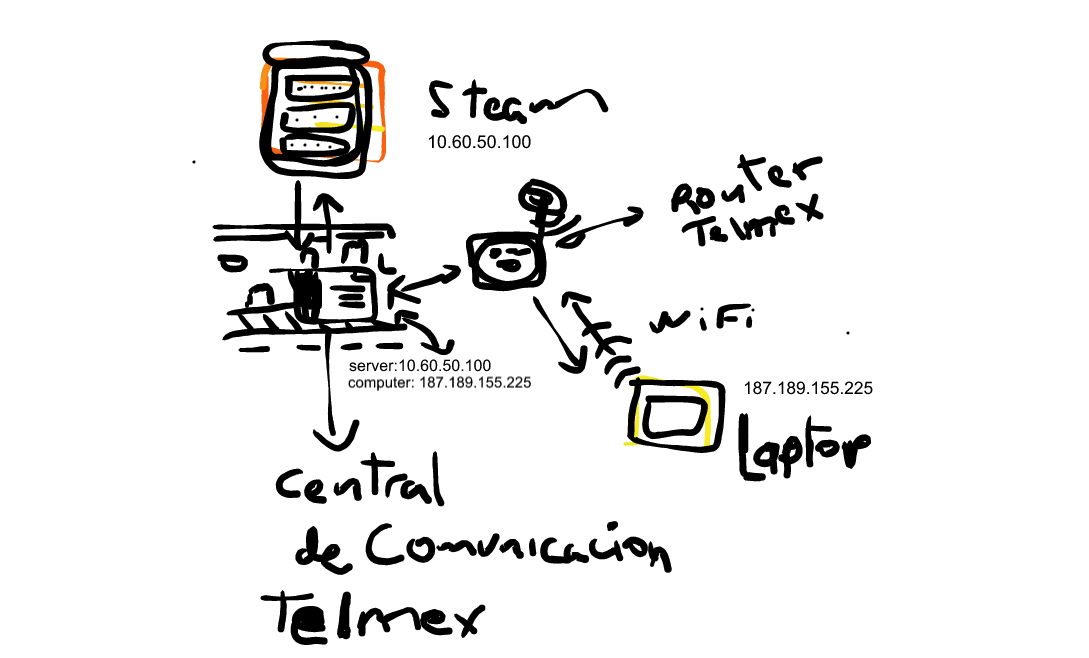 Steam
10.60.50.100
Router
Telmex
WiFi
server:10.60.50.100
computer: 187.189.155.225
187.189.155.225
Laptop
Central
de Comunicacion
Telmex